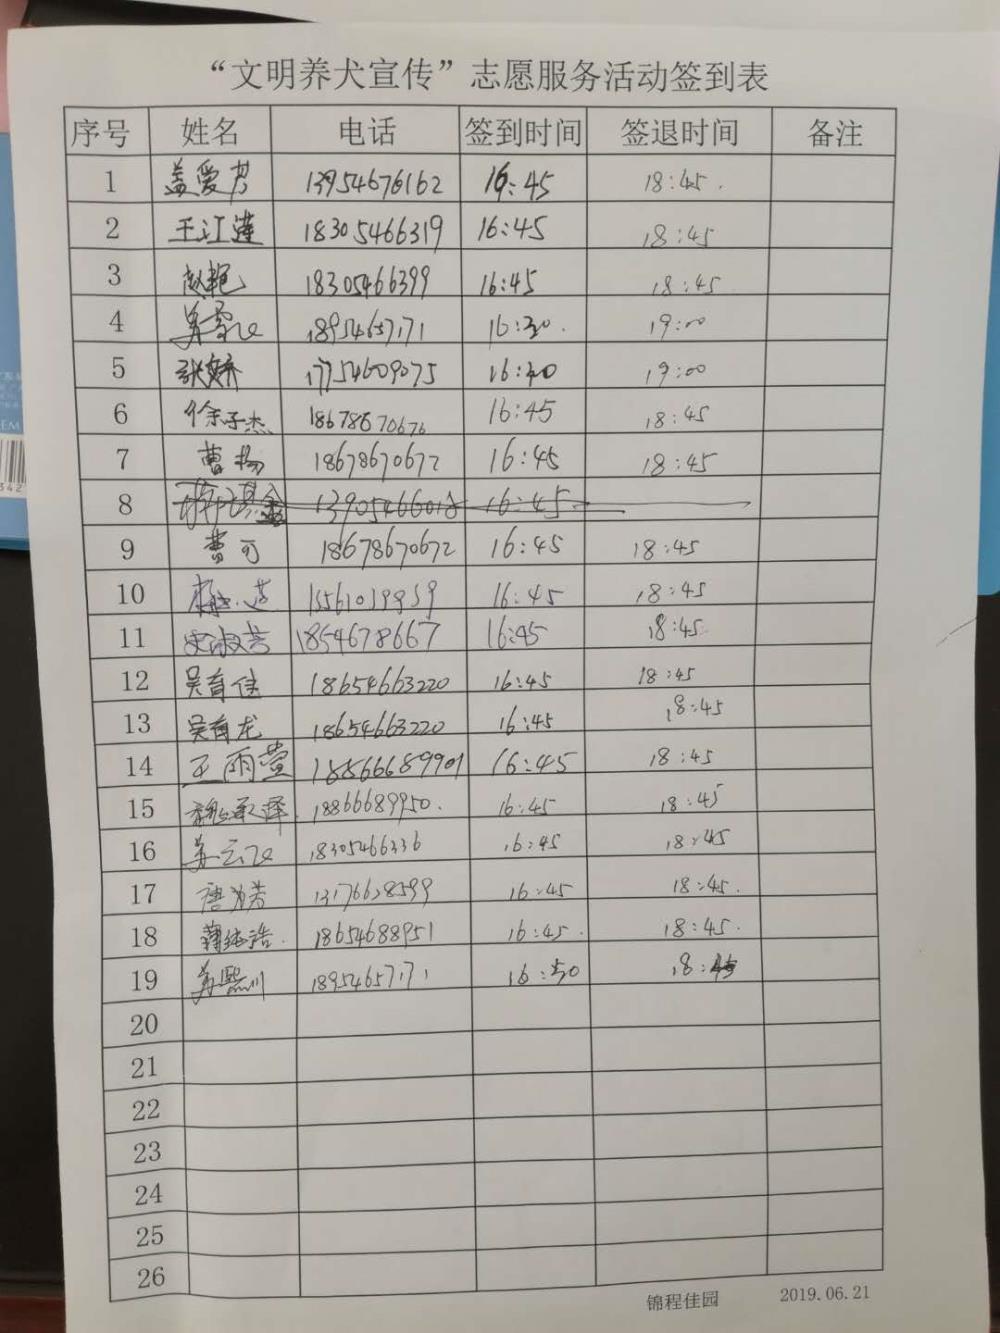 “文明养犬宣传”志愿服务活动签到表
序号 姓名 电话 签到时间 签退时间 备注
1 盖爱君 13954676162 16:45 18:45.
2 王江莲 18305466319 16:45 18:45
3 赵艳 18305466399 16:45 18:45
4 18954657171 16:30. 19:00
5 张娇 17754609075 16:30 19:00
6 徐子杰 18678670676 16:45 18:45
7 曹扬 18678670672 16:45 18:45
8 13905466018 16:45
9 曹可 18678670672 16:45 18:45
10 15561039959 16:45 18:45
11 1854678667 16:45 18:45
12 吴育佳 18654663220 16:45 18:45
13 吴育龙 18654663220 16:45 18:45
14 王雨萱 18866689901 16:45 18:45
15 魏承泽 18866689950. 16:45 18:45
16 苏云飞 18305466336 16:45 18:45
17 唐为芳 13176628599 16:45 18:45.
18 18654688951 16:45. 18:45.
19 苏熙川 18954657171 16:50 18:45
20
21
22
23
24
25
26
锦程佳园 2019.06.21